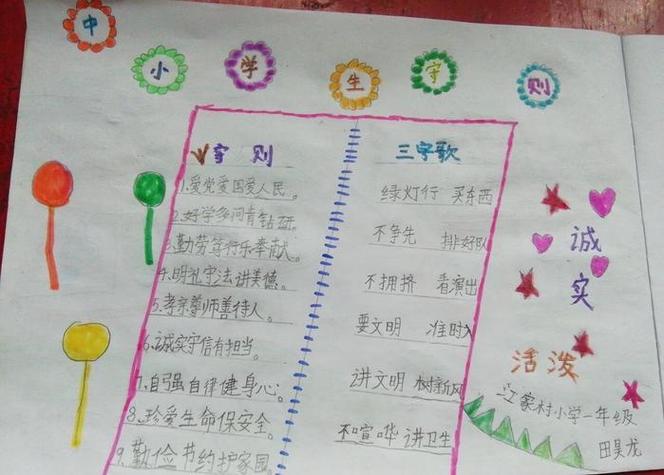 中小学生守则
守则
1、爱党爱国爱人民。
2、好学多问肯钻研。
3、勤劳笃行乐奉献。
4、明礼守法讲美德。
5、孝亲尊师善待人。
6、诚实守信有担当。
7、自强自律健身心。
8、珍爱生命保安全。
9、勤俭节约护家园
三字歌
绿灯行 买东西
不争先 排好队
不拥挤 看演出
要文明 准时入
讲文明 树新风
不喧哗 讲卫生
诚实
活泼
江家村小学一年级
田昊龙